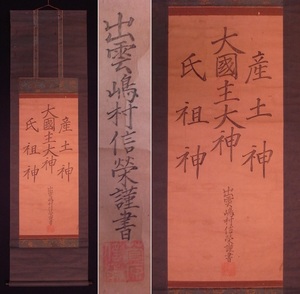 産土神
大國主大神
氏祖神
出雲嶋村信榮謹書
出雲嶋村信榮謹書
産土神
大國主大神
氏祖神
出雲嶋村信榮謹書